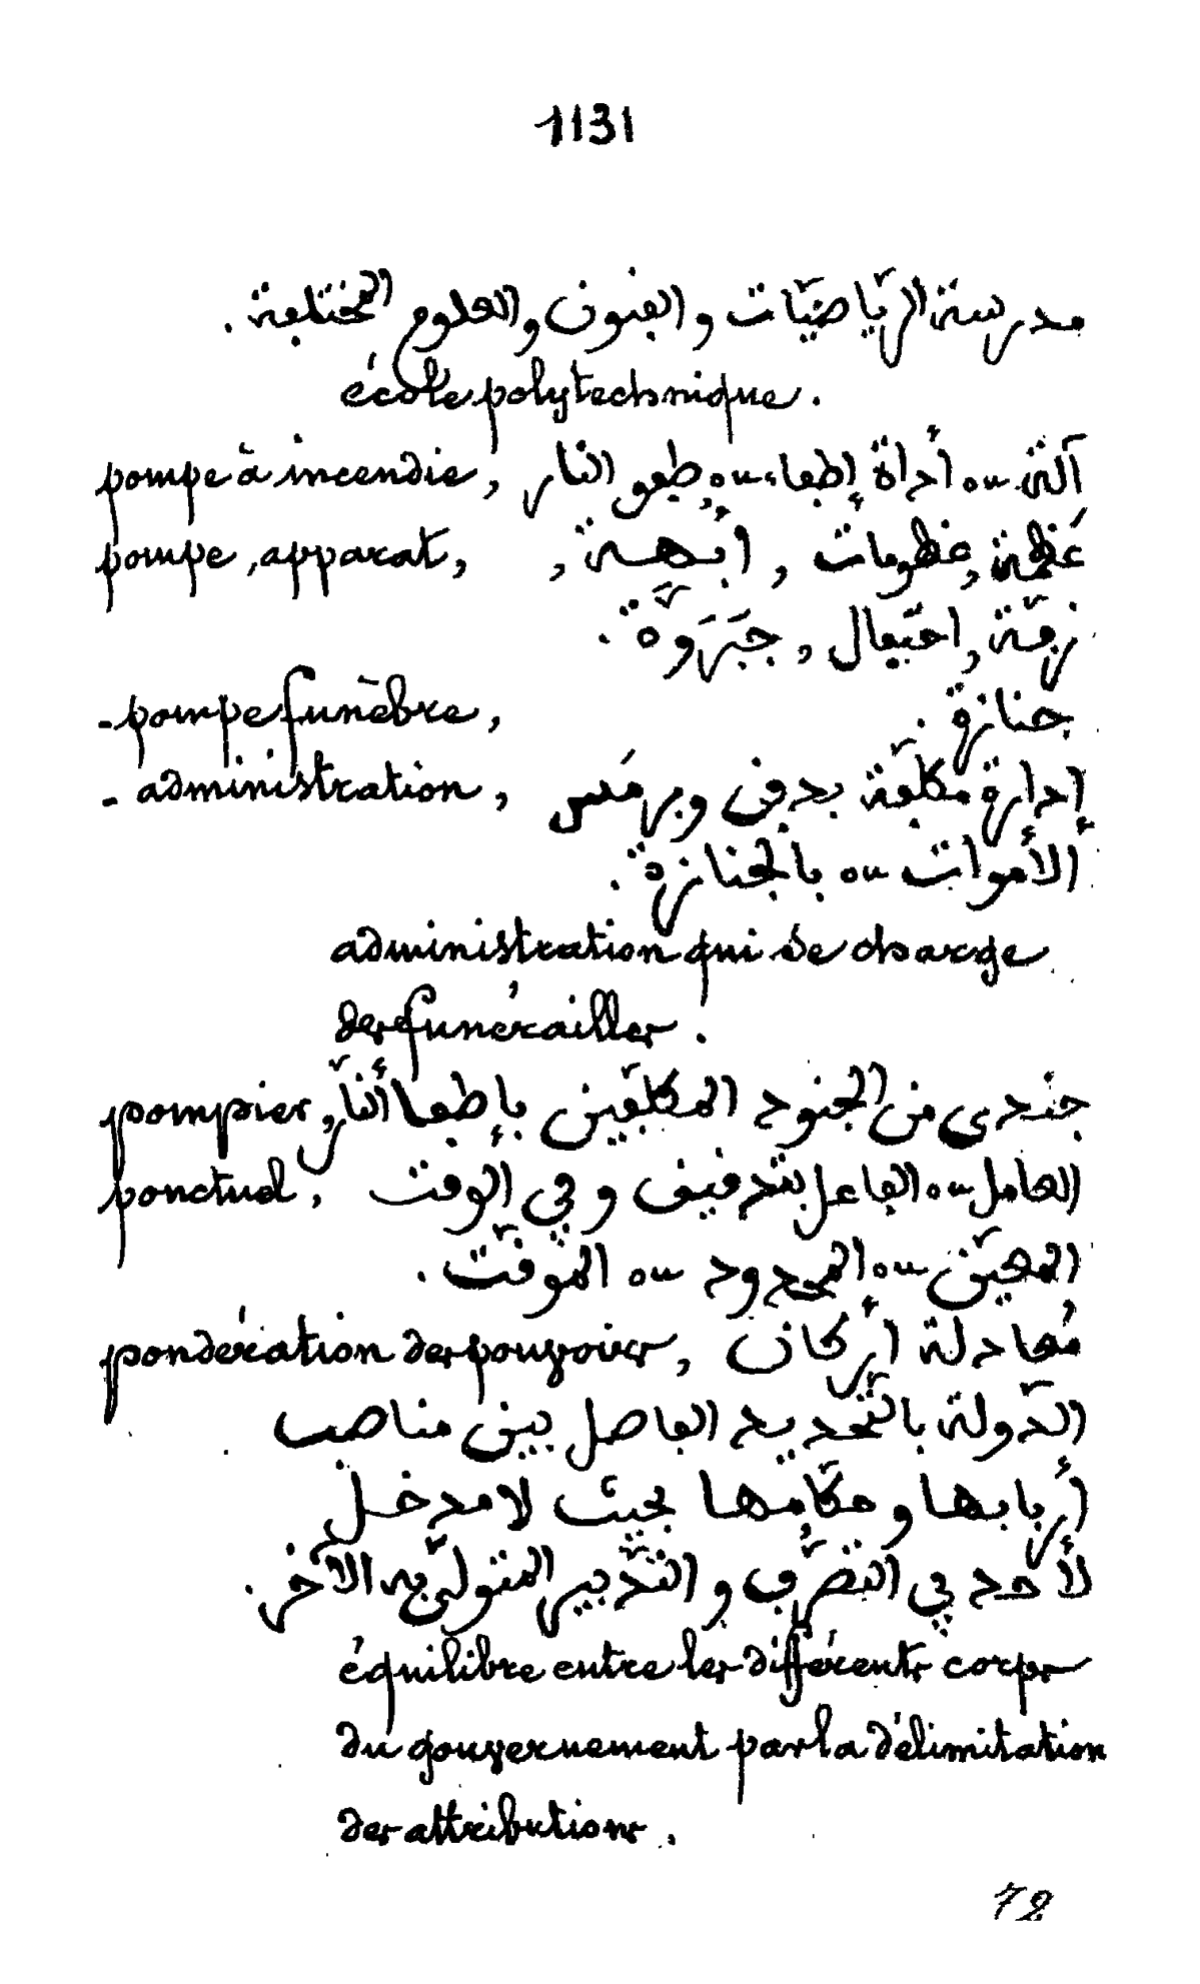 1131
مدرسة الرّياضيّات والفنون والعلوم المختلفة.
école polytechnique.
pompe à incendie, آلة ou أداة إطفاء ou طفو النار
pompe, apparat, عَظمة, عظومات, أبّهـة,
زفّة, احتفال, جَبَروّة.
- pompe funèbre, جنازة.
- administration, إدارة مكلّفة بدفن وبرمَس
الأموات ou بالجنازة.
administration qui se charge
des funérailles.
pompier, جندي من الجنود المكلّفين بإطفا النّار
ponctuel, العامل ou الفاعل بتدقيق و في الوقت
المعيّن ou المحدود ou الموقّت.
pondération des pouvoirs, مُعادلة أركان
الدّولة بالتّحديد الفاصل بين مناصب
أربابها وحكّامها بحيث لا مدخل
لأحد في التصرّف و التّدبير المتولّي به الآخر.
équilibre entre les différents corps
du gouvernement par la délimitation
des attributions.
72